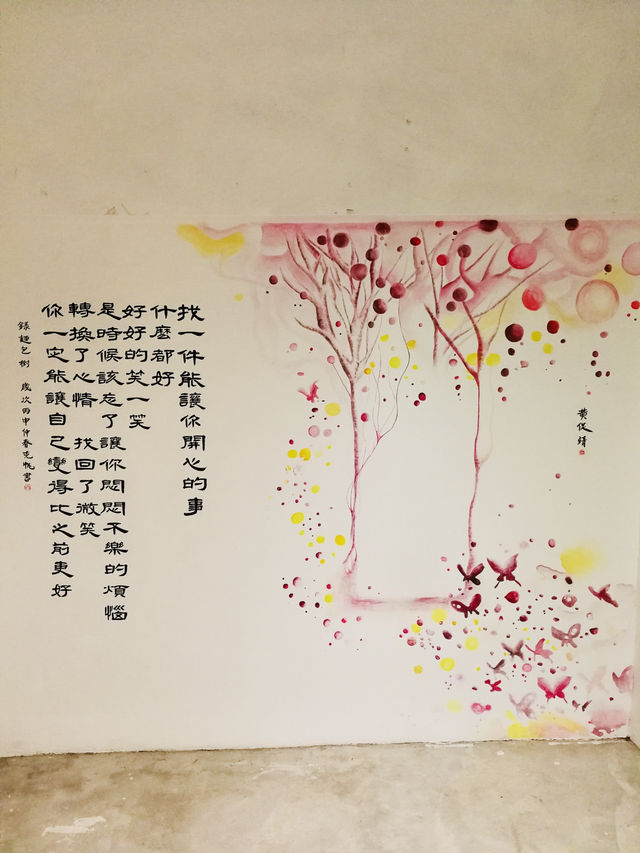 找一件能讓你開心的事
什麼都好
好好的笑一笑
是時候該忘了讓你悶悶不樂的煩惱
轉換了心情 找回了微笑
你一定能讓自己變得比之前更好
歲次丙申仲春
黃俊